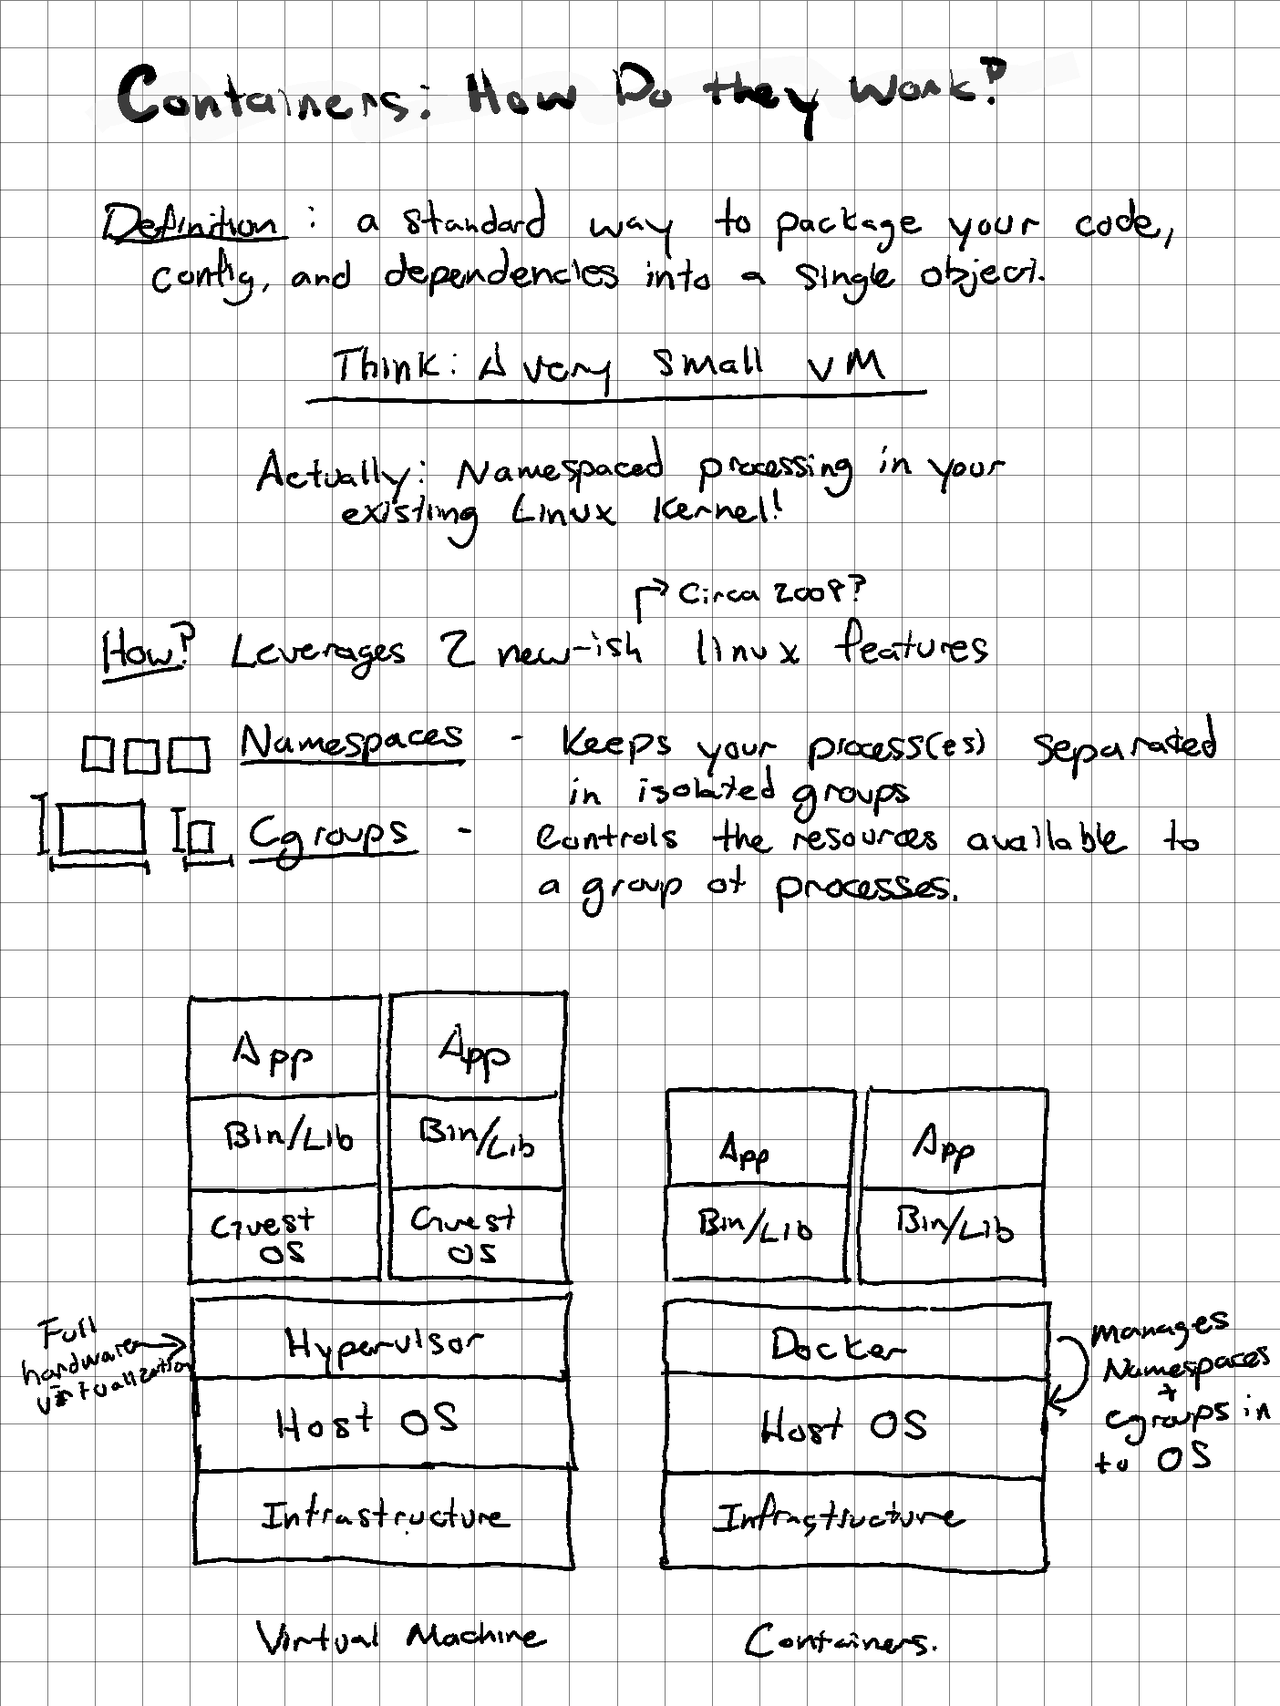 Containers: How Do they Work?
Definition: a standard way to package your code,
config, and dependencies into a single object.
Think: A very small VM
Actually: Namespaced processing in your
existing Linux Kernel!
Circa 2008?
How? Leverages 2 new-ish linux features
Namespaces - Keeps your process(es) separated
in isolated groups
Cgroups - Controls the resources available to
a group of processes.
App App
Bin/Lib Bin/Lib
Guest Guest
OS OS
Full
hardware
virtualization
Hypervisor
Host OS
Infrastructure
Virtual Machine
App App
Bin/Lib Bin/Lib
Docker
Host OS
Infrastructure
manages
Namespaces
+
Cgroups in
to OS
Containers.